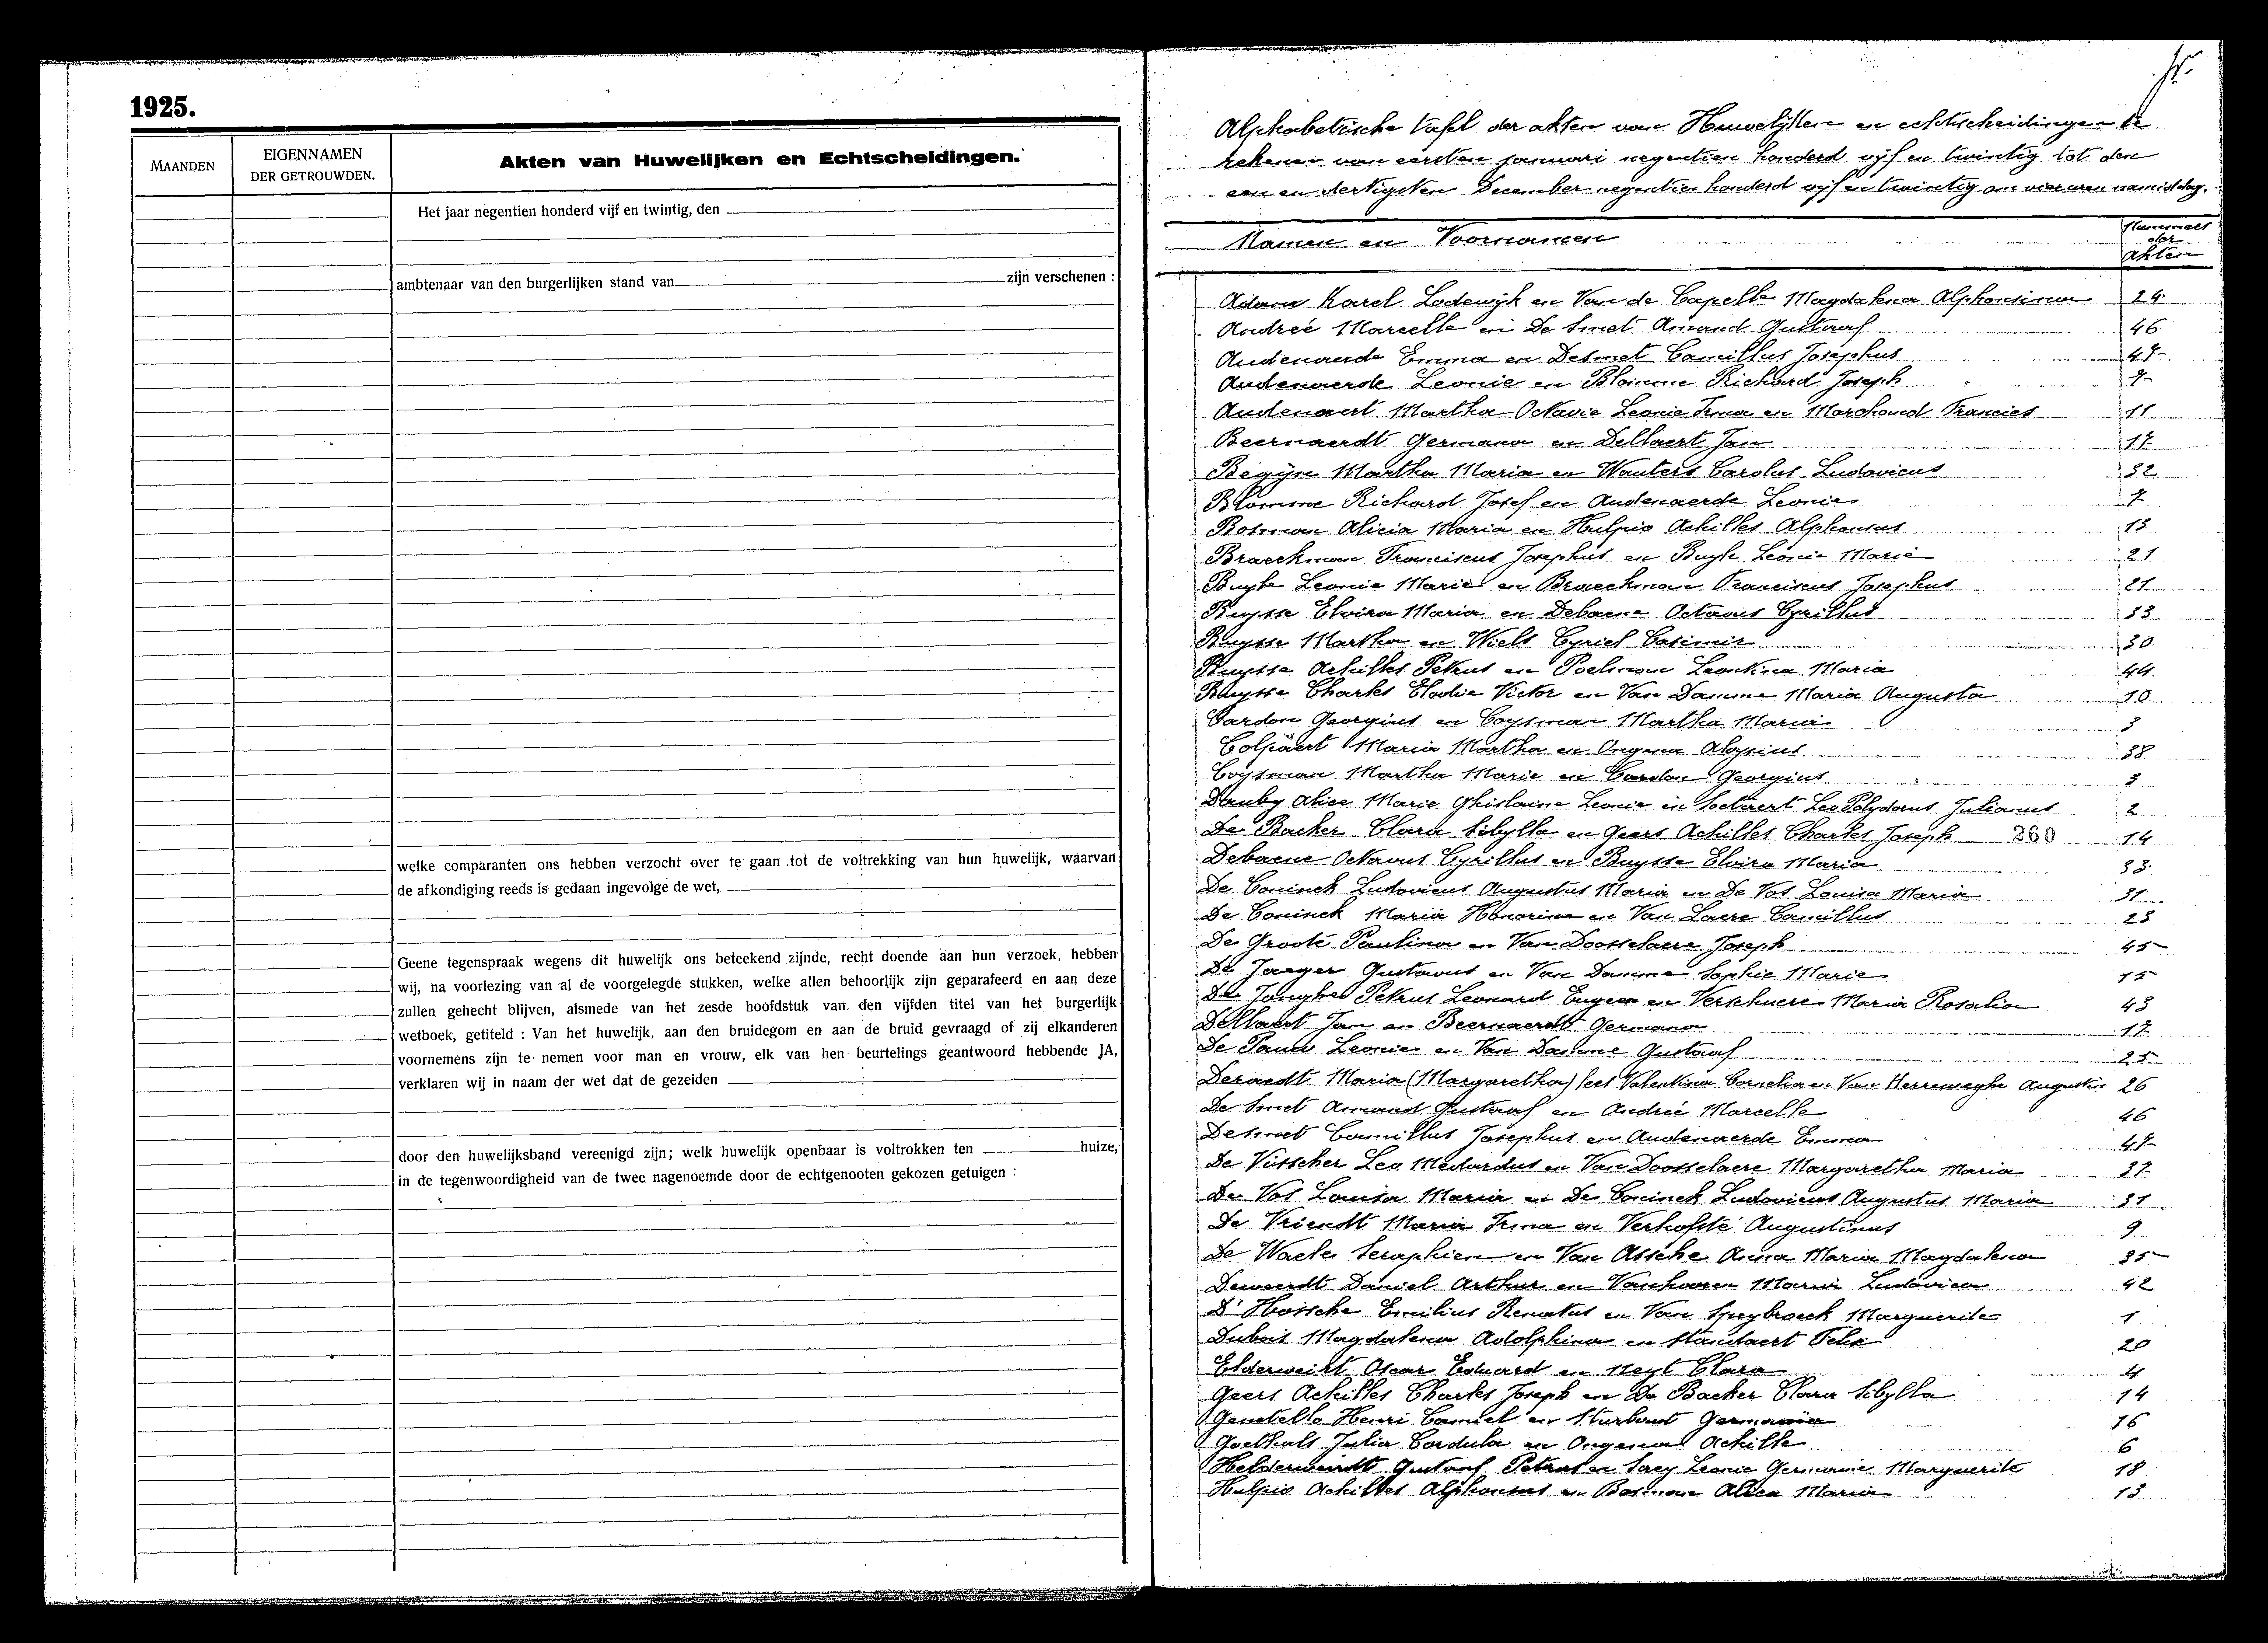 1925.
MAANDEN
EIGENNAMEN
DER GETROUWDEN.
Akten van Huwelijken en Echtscheidingen.
Het jaar negentien honderd vijf en twintig, den
ambtenaar van den burgerlijken stand van zijn verschenen :
welke comparanten ons hebben verzocht over te gaan tot de voltrekking van hun huwelijk, waarvan
de afkondiging reeds is gedaan ingevolge de wet,
Geene tegenspraak wegens dit huwelijk ons beteekend zijnde, recht doende aan hun verzoek, hebben
wij, na voorlezing van al de voorgelegde stukken, welke allen behoorlijk zijn geparafeerd en aan deze
zullen gehecht blijven, alsmede van het zesde hoofdstuk van den vijfden titel van het burgerlijk
wetboek, getiteld : Van het huwelijk, aan den bruidegom en aan de bruid gevraagd of zij elkanderen
voornemens zijn te nemen voor man en vrouw, elk van hen beurtelings geantwoord hebbende JA,
verklaren wij in naam der wet dat de gezeiden
door den huwelijksband vereenigd zijn; welk huwelijk openbaar is voltrokken ten huize,
in de tegenwoordigheid van de twee nagenoemde door de echtgenooten gekozen getuigen :
Alphabetische tafel der akten van Huwelijken en echtscheidingen te
rekenen van eersten januari negentien honderd vijf en twintig tot den
een en dertigsten December negentien honderd vijf en twintig om vier uren namiddag.
Namen en Voornamen
Nummers
der
Akten
Adam Karel Lodewijk en Van de Capelle Magdalena Alphonsina 24
Andreé Marcelle en De Smet Amand Gustaaf 46
Audenaerde Emma en Desmet Camillus Josephus 47
Audenaerde Leonie en Blomme Richard Joseph 7
Audenaert Martha Octavie Leonie Irma en Marchand Francies 11
Beernaerdt Germana en Dellaert Jan 17
Begijn Martha Maria en Wauters Carolus Ludovicus 32
Blomme Richard Josef en Audenaerde Leonie 7
Bosman Alicia Maria en Hulpio Achilles Alphonsus 13
Braeckman Franciscus Josephus en Buyle Leonie Marie 21
Buyle Leonie Marie en Braeckman Franciscus Josephus 21
Buysse Elvira Maria en Debaene Octavus Cyrillus 33
Buysse Martha en Wiels Cyriel Casimir 30
Buysse Achilles Petrus en Poelman Leontina Maria 44
Buysse Charles Elodie Victor en Van Damme Maria Augusta 10
Cardon Georgius en Coysman Martha Maria 3
Colpaert Maria Martha en Ongena Aloysius 38
Coysman Martha Marie en Cardon Georgius 3
Dauby Alice Marie Ghislaine Leonie en Leo Polydorus Julianus 2
De Backer Clara Sibylla en Geers Achilles Charles Joseph 260 14
Debaene Octavus Cyrillus en Buysse Elvira Maria 33
De Coninck Ludovicus Augustus Maria en De Vos Louisa Maria 31
De Coninck Maria Honorina en Van Laere Camillus 23
De Groote Paulina en Van Doosselaere Joseph 45
De Jaeger Gustavus en Van Damme Sophie Marie 15
De Jonghe Petrus Leonard Eugeen en Verschuere Maria Rosalia 43
Dellaert Jan en Beernaerdt Germana 17
De Pauw Leonie en Van Damme Gustaaf 25
Deraedt Maria (Margaretha) Valentina Cornelia en Van Herreweghe Augustin 26
De Smet Armand Gustaaf en Andreé Marcelle 46
Desmet Camillus Josephus en Audenaerde Emma 47
De Visscher Leo Medardus en Van Doosselaere Margaretha Maria 37
De Vos Louisa Maria en De Coninck Ludovicus Augustus Maria 31
De Vriendt Maria Irma en Verhofsté Augustinus 9
De Waele Seraphien en Van Assche Anna Maria Magdalena 35
Deweerdt Daniel Arthur en Vanhooren Maria Ludovica 42
D'Hossche Emilius Renatus en Van Speybroeck Marguerite 1
Dubois Magdalena Adolphina en Standaert Felix 20
Elderweirt Oscar Eduard en Neyt Clara 4
Geers Achilles Charles Joseph en De Backer Clara Sibylla 14
Henri Camiel en Sturbaut Germania 16
Goethals Julia Cordula en Ongena Achille 6
Helderweirdt Gustaaf Petrus en Serey Leonie Germanie Marguerite 18
Hulpio Achilles Alphonsus en Bosman Alicia Maria 13